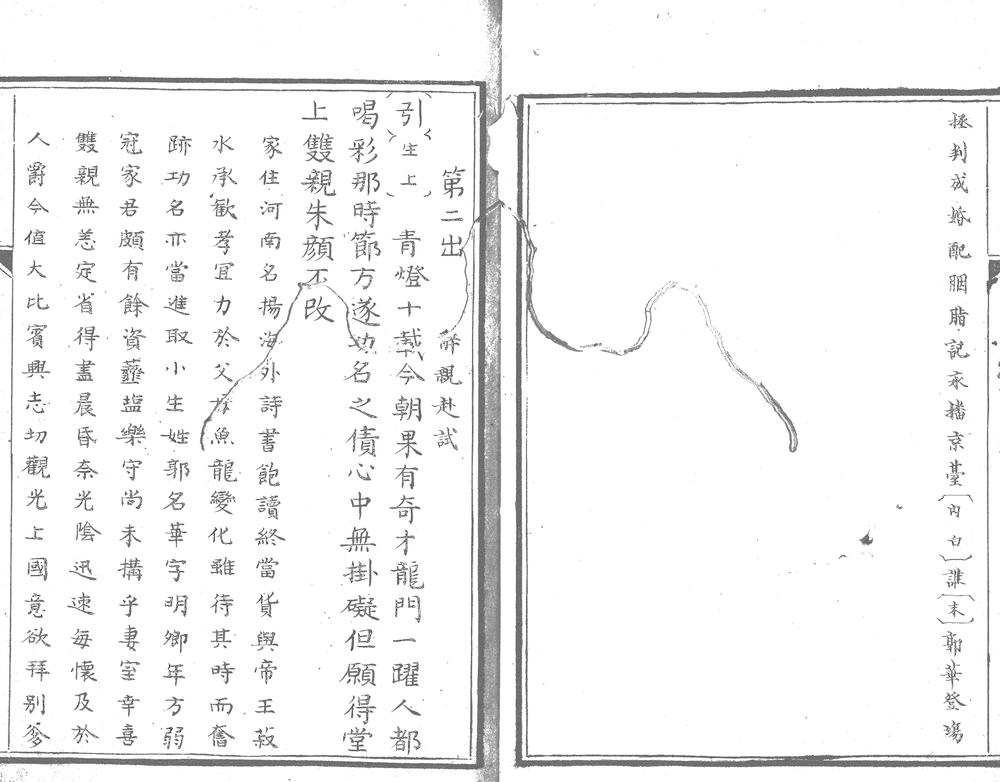 拯判成婚配胭脂記永播京臺〔內白〕誰〔末〕郭華登塲
第二出 辭親赴試
引〔生上〕青燈十載今朝果有奇才龍門一躍人都
喝彩那時節方遂功名之債心中無掛礙但願得堂
上雙親朱顏不改
家住河南名揚海外詩書飽讀終當貨與帝王菽
水承歡孝宜力於父母魚龍變化雖待其時而奮
跡功名亦當進取小生姓郭名華字明卿年方弱
冠家君頗有餘資虀塩樂守尚未搆乎妻室幸喜
雙親無恙定省得盡晨昏奈光陰迅速每懷及於
人爵今值大比賓興志切觀光上國意欲拜别爹